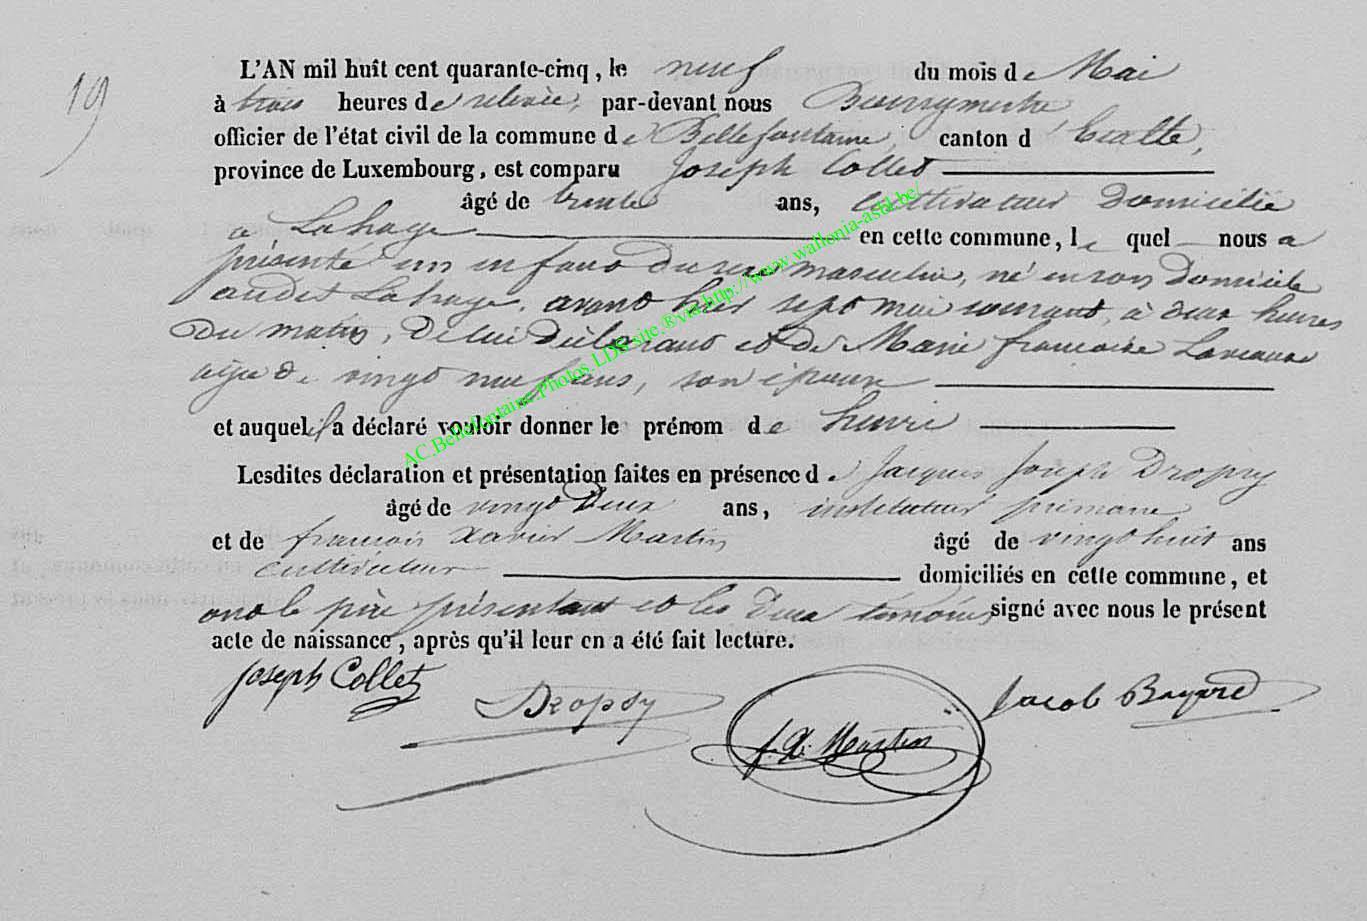 19
L'AN mil huit cent quarante-cinq, le neuf du mois de Mai
à trois heures de relevée, par-devant nous Bourgmestre
officier de l'état civil de la commune de Bellefontaine, canton d'Etalle,
province de Luxembourg, est comparu Joseph Collet
âgé de trente ans, cultivateur domicilié
à Lahage en cette commune, lequel nous a
présenté un enfant du sexe masculin, né en son domicile
audit Lahage, avant hier sept mai courant, à deux heures
du matin, de lui déclarant et de Marie françoise
agée de vingt neuf ans, son épouse
et auquel il a déclaré vouloir donner le prénom de henri
Lesdites déclaration et présentation faites en présence de Jacques Joseph Dropsy
âgé de vingt deux ans, instituteur primaire
et de francois Xavier Martin âgé de vingt huit ans
cultivateur domiciliés en cette commune, et
ont le père présentant et les deux témoins signé avec nous le présent
acte de naissance, après qu'il leur en a été fait lecture.
Joseph Collet
Dropsy
f. X. Martin
Jacob Bayard
AC.Bellefontaine.Photos LDS site ® via http://www.wallonia-asbl.be/